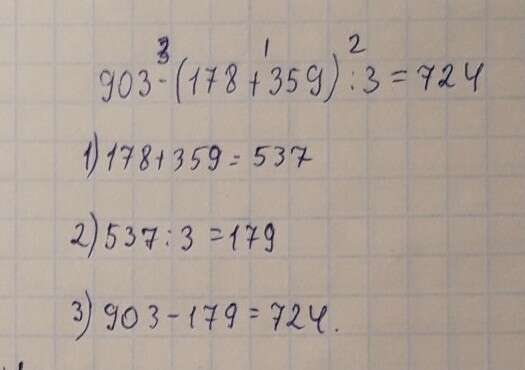 3 1 2
903-(178+359):3=724
1) 178+359=537
2) 537:3=179
3) 903-179=724.